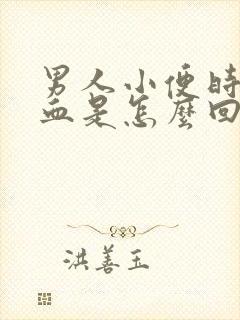 男人小便時
血是怎麼回
洪善玉